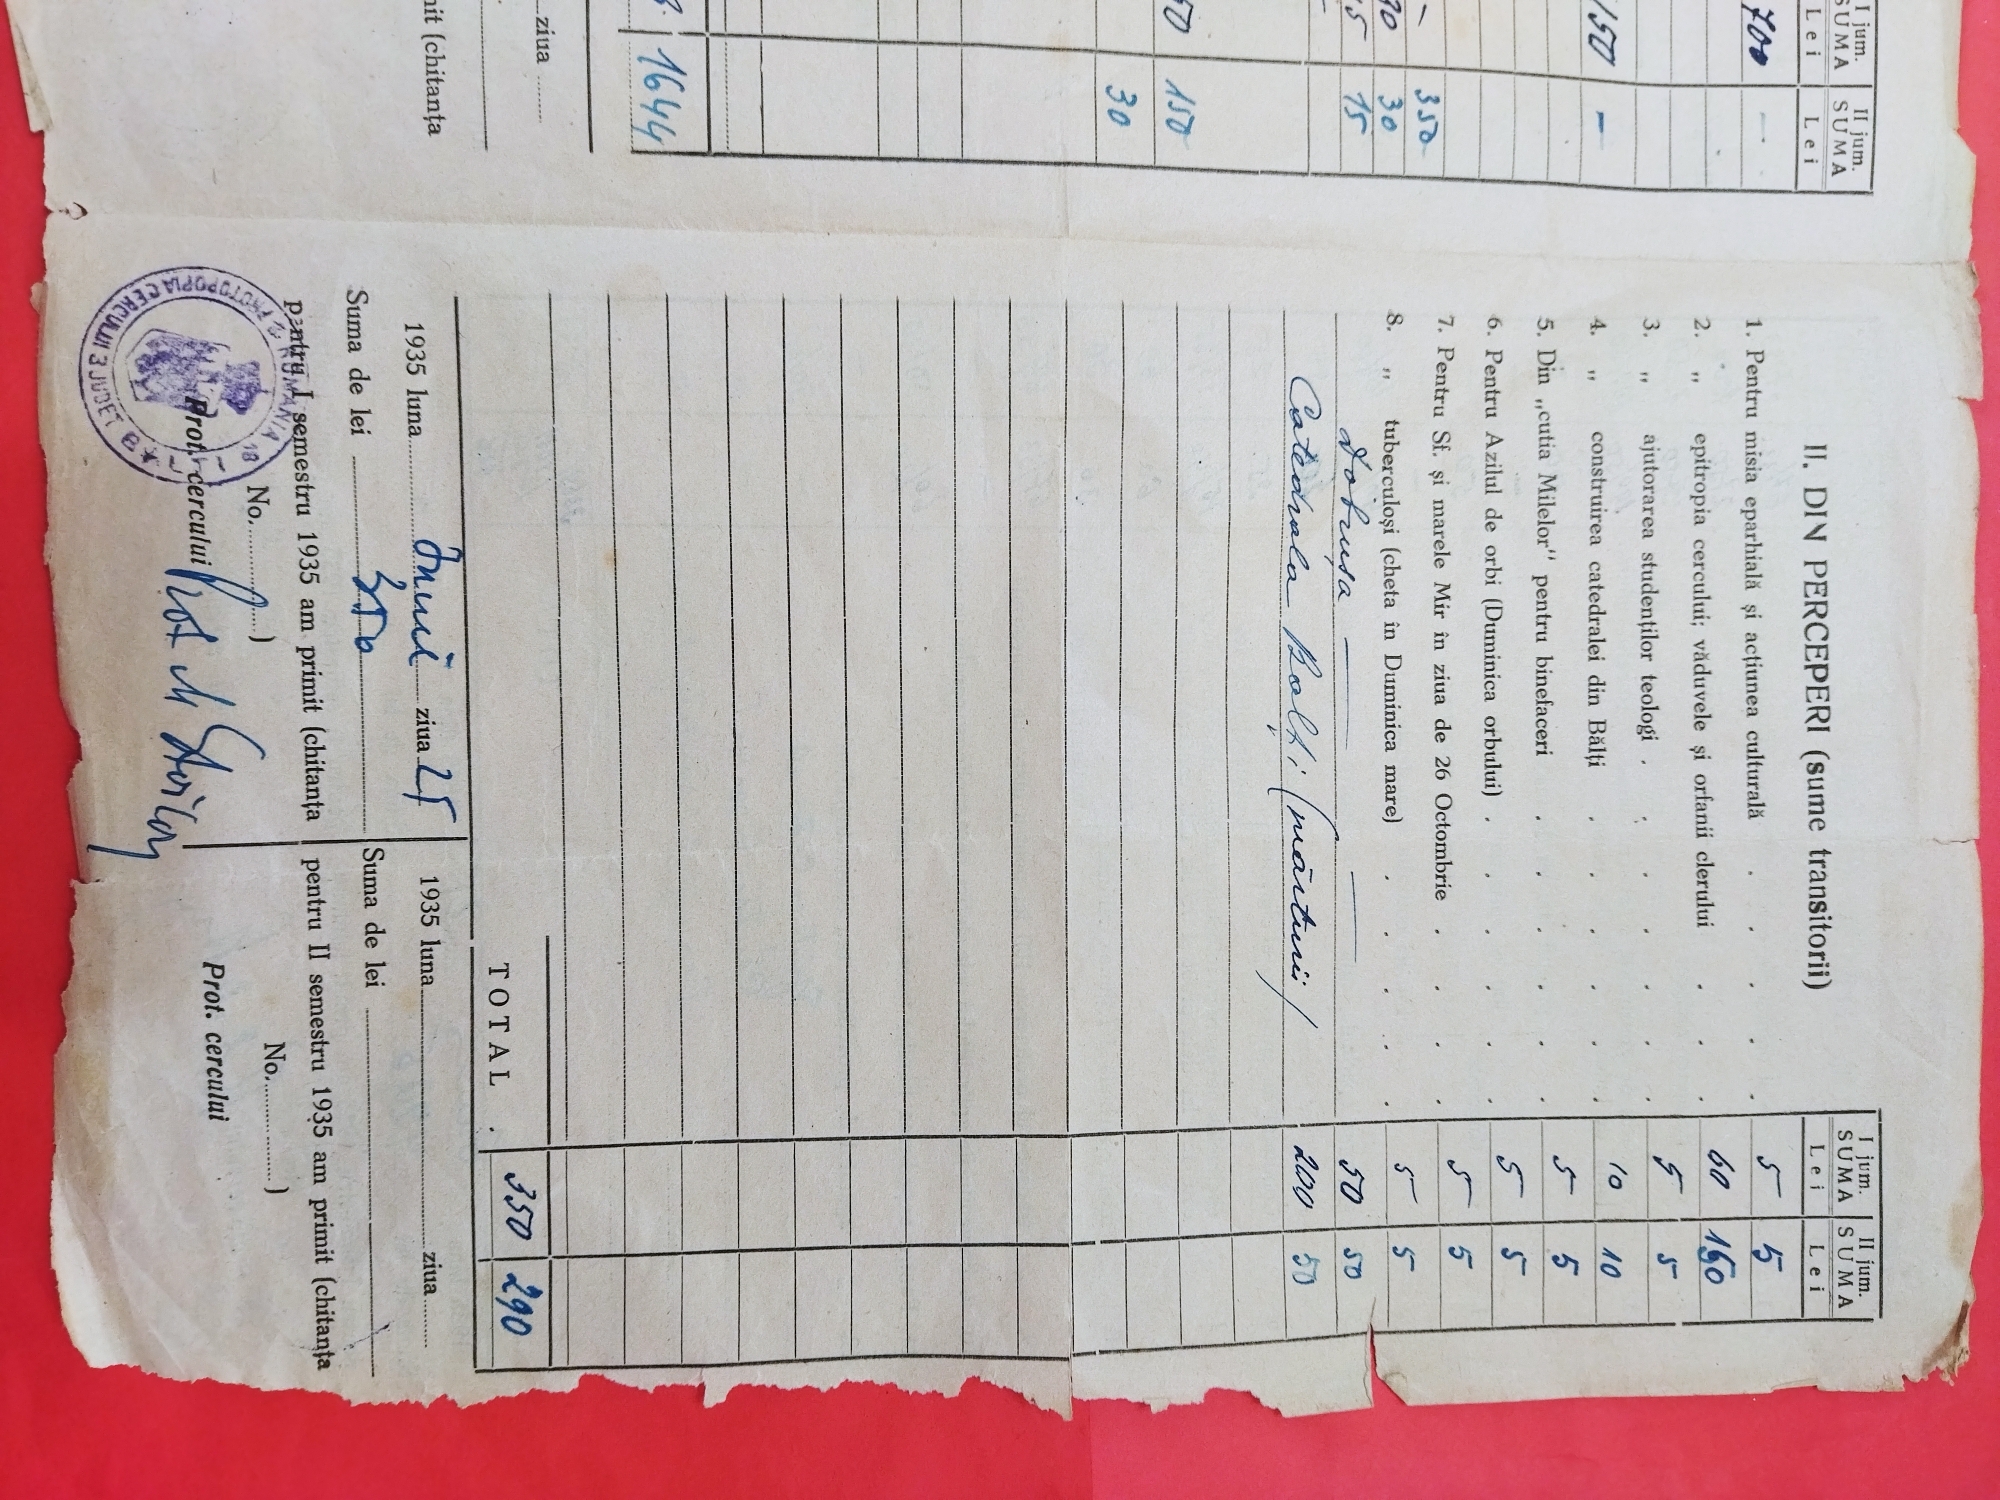 I jum. II jum.
SUMA SUMA
Lei Lei
700 —
150 —
— 350
90 30
15 15
50 150
30
1644
ziua
nit (chitanța
II. DIN PERCEPERI (sume transitorii)
I jum. II jum.
SUMA SUMA
Lei Lei
1. Pentru misia eparhială și acțiunea culturală . . . . . 5 5
2. „ epitropia cercului; văduvele și orfanii clerului . . . 60 160
3. „ ajutorarea studenților teologi . . . . . 5 5
4. „ construirea catedralei din Bălți . . . . . 10 10
5. Din „cutia Milelor" pentru binefaceri . . . . . 5 5
6. Pentru Azilul de orbi (Duminica orbului) . . . . . 5 5
7. Pentru Sf. și marele Mir în ziua de 26 Octombrie . . . . 5 5
8. „ tuberculoși (cheta în Duminica mare) . . . . . 5 5
Dobrușa — — 50 50
Catedrala Bolți (mărturii) 200 50
TOTAL . 350 290
1935 luna Iunii ziua 25
Suma de lei 350
pentru I semestru 1935 am primit (chitanța
No. )
Prot. cercului
1935 luna ziua
Suma de lei
pentru II semestru 1935 am primit (chitanța
No. )
Prot. cercului
ROMANIA
PROTOPOPIA CERCULUI 3 JUDEȚ